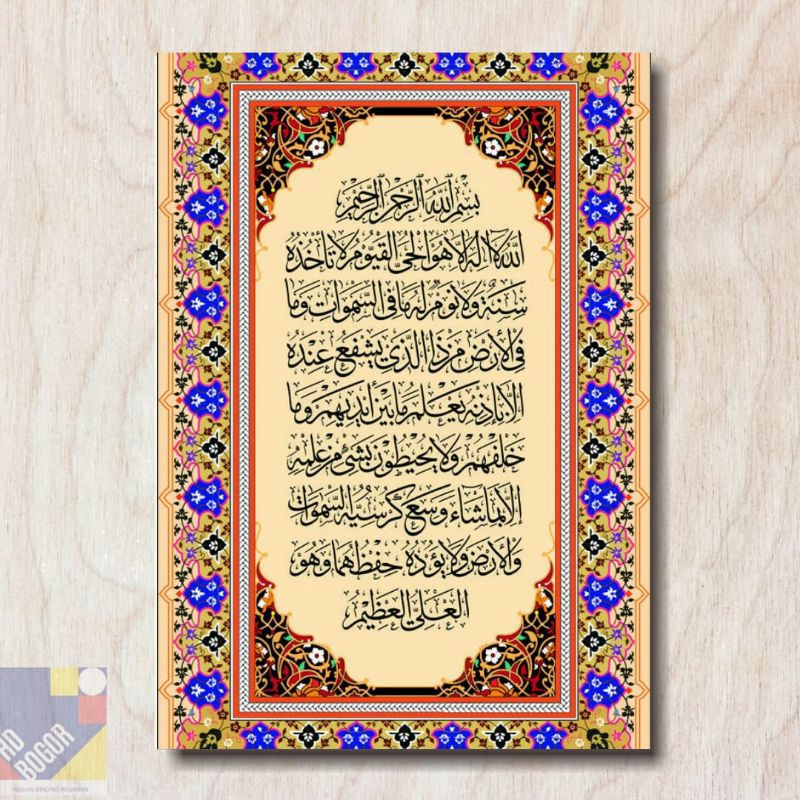 بِسْمِ ٱللَّهِ ٱلرَّحْمَٰنِ ٱلرَّحِيمِ
اللَّهُ لَا إِلَهَ إِلَّا هُوَ الْحَيُّ الْقَيُّومُ لَا تَأْخُذُهُ
سِنَةٌ وَلَا نَوْمٌ لَهُ مَا فِي السَّمَوَاتِ وَمَا
فِي الْأَرْضِ مَنْ ذَا الَّذِي يَشْفَعُ عِنْدَهُ
إِلَّا بِإِذْنِهِ يَعْلَمُ مَا بَيْنَ أَيْدِيهِمْ وَمَا
خَلْفَهُمْ وَلَا يُحِيطُونَ بِشَيْءٍ مِنْ عِلْمِهِ
إِلَّا بِمَا شَاءَ وَسِعَ كُرْسِيُّهُ السَّمَوَاتِ
وَالْأَرْضَ وَلَا يَؤُدُهُ حِفْظُهُمَا وَهُوَ
الْعَلِيُّ الْعَظِيمُ
BOGOR
HIASAN DINDING RUANGAN